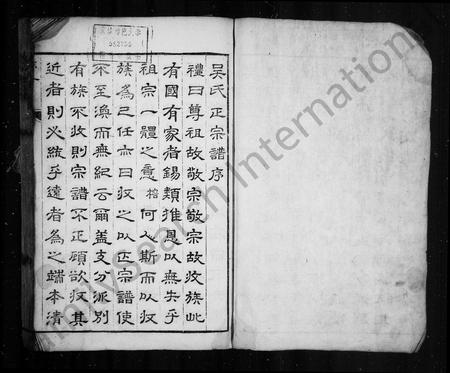 吳氏正宗譜序
禮曰尊祖故敬宗敬宗故收族此
有國有家者錫類推恩以無失乎
祖宗一體之意格何人斯而以收
族為己任亦曰收之以正宗譜使
不至渙而無紀云爾蓋支分派別
有族不收則宗譜不正顧欲收其
近者則必統乎遠者為之端本清
FamilySearch International